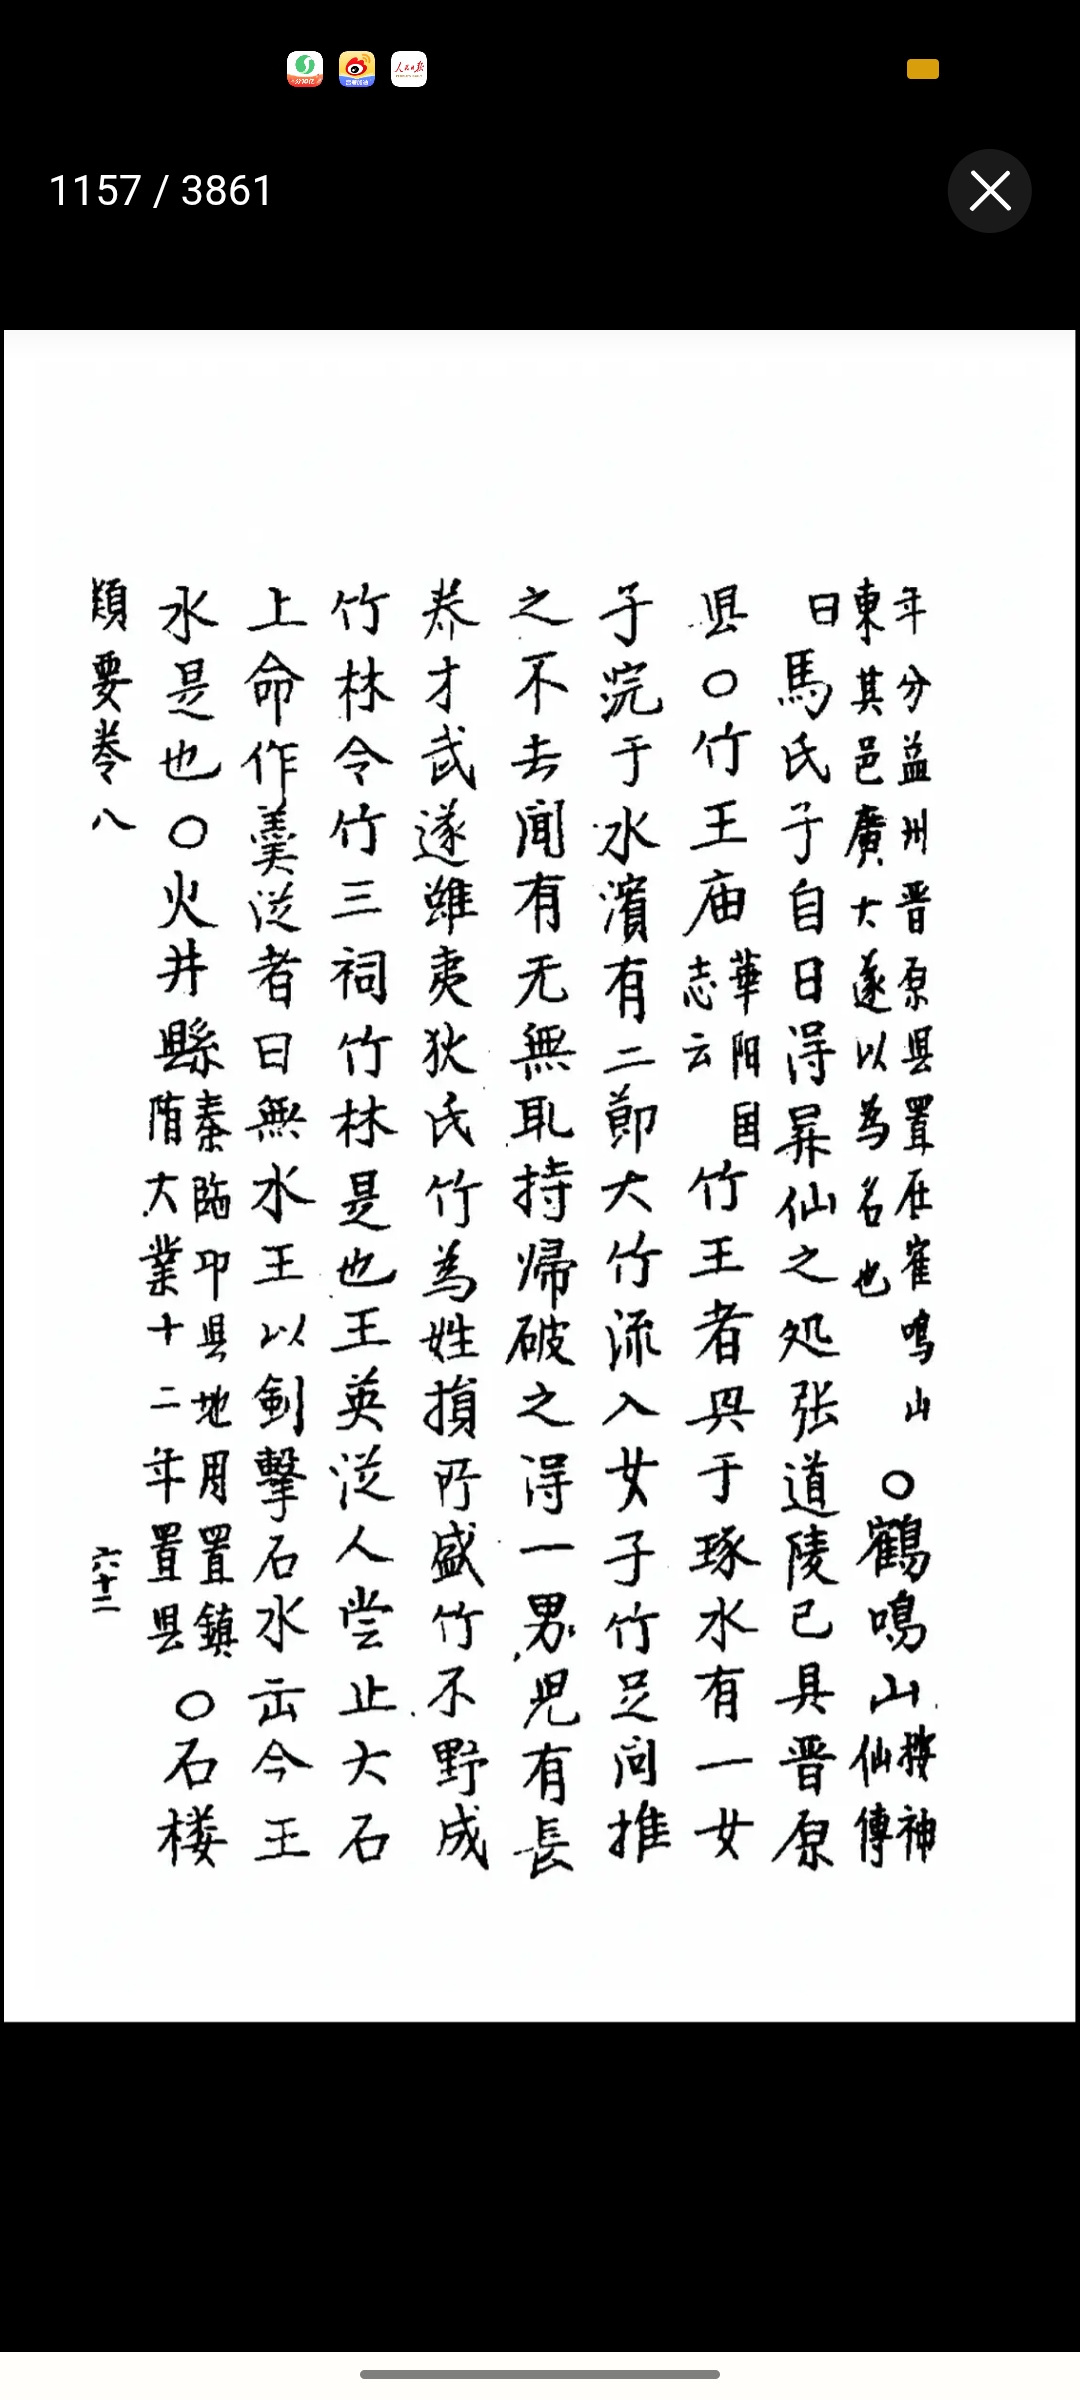 1157 / 3861
年分益州晋原县置在崔鳴山
東其邑廣大遂以為名也
〇鶴鳴山
搜神
仙傳
曰
馬氏子自日得昇仙之处张道陵已具晋原
县〇竹王庙
華阳国
志云
竹王者興于琢水有一女
子浣于水濱有二節大竹流入女子竹足问推
之不去闻有无無耴持帰破之得一男児有長
养才武遂雖夷狄氏竹為姓損所盛竹不野成
竹林令竹三祠竹林是也王英従人尝止大石
上命作羹従者曰無水王以剣擊石水出今王
水是也〇火井縣
秦臨邛县地用置鎮
隋大業十二年置县
〇石楼
類要卷八
六十二